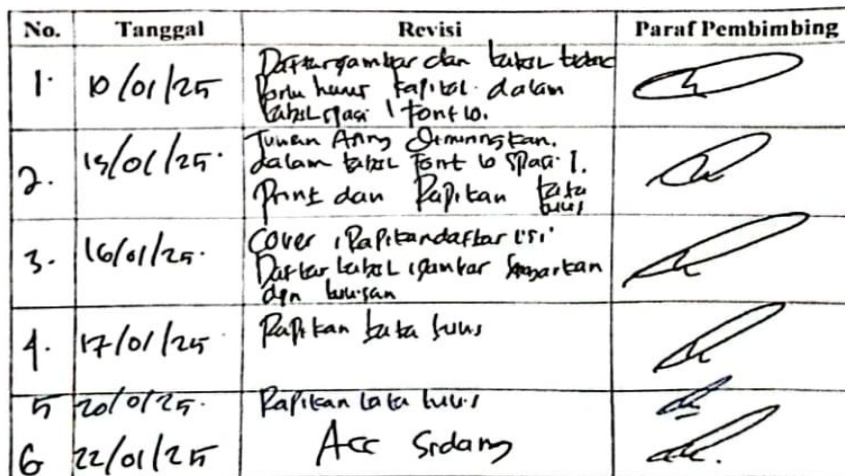 No. Tanggal Revisi Paraf Pembimbing
1. 10/01/25 Daftar gambar dan tabel tidak
perlu huruf kapital dalam
tabel spasi 1 font 10.
2. 15/01/25.
dalam tabel font 10 spasi 1.
Print dan Rapikan tata
tulis
3. 16/01/25. Cover, Rapikan daftar isi
Daftar tabel, gambar
dgn tulisan
4. 17/01/25 Rapikan tata tulis
5 20/0/25. Rapikan tata tulis
6 22/01/25 Acc Sidang